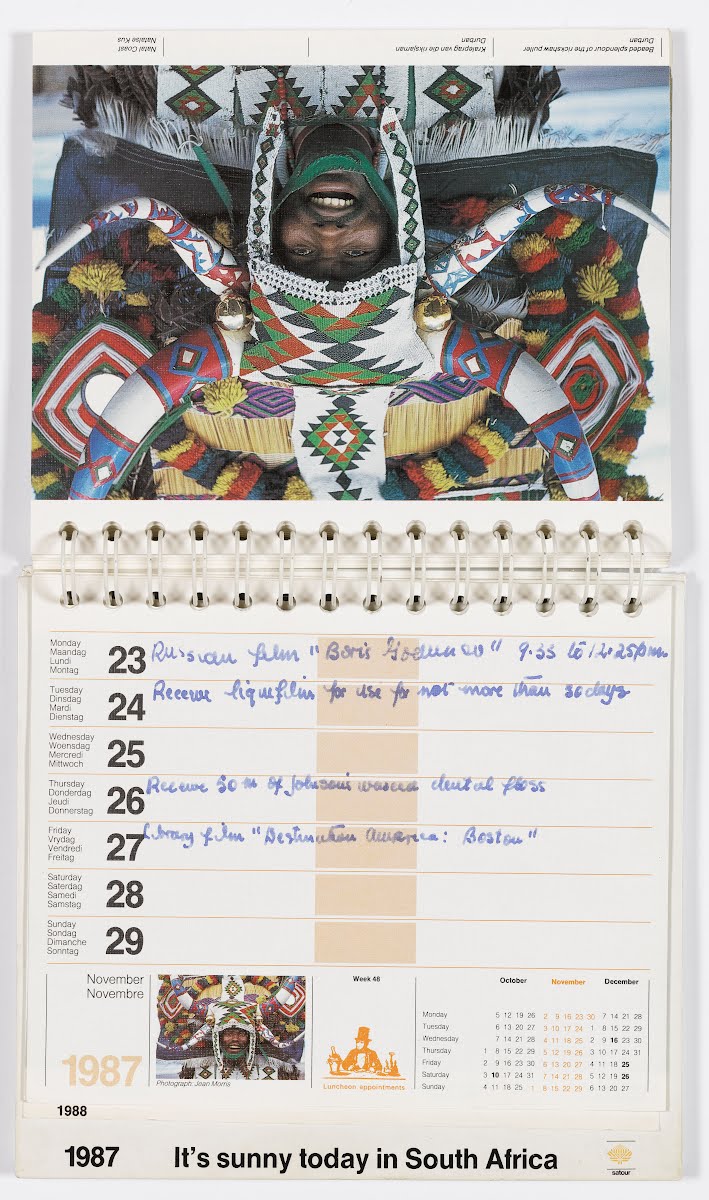 Beaded splendour of the rickshaw puller
Durban
Kraleprag van die riksjaman
Durban
Natal Coast
Natalse Kus
Monday
Maandag
Lundi
Montag
23 Russian film "Boris Godunov" 9.35 to 12.25pm
Tuesday
Dinsdag
Mardi
Dienstag
24 Receive liquefilm for use for not more than 30 days
Wednesday
Woensdag
Mercredi
Mittwoch
25
Thursday
Donderdag
Jeudi
Donnerstag
26 Receive 50 m of Johnson's waxed dental floss
Friday
Vrydag
Vendredi
Freitag
27 Library film "Destination America: Boston"
Saturday
Saterdag
Samedi
Samstag
28
Sunday
Sondag
Dimanche
Sonntag
29
November
Novembre
1987
Photograph: Jean Morris
Week 48
Luncheon appointments
October November December
Monday 5 12 19 26 2 9 16 23 30 7 14 21 28
Tuesday 6 13 20 27 3 10 17 24 1 8 15 22 29
Wednesday 7 14 21 28 4 11 18 25 2 9 16 23 30
Thursday 1 8 15 22 29 5 12 19 26 3 10 17 24 31
Friday 2 9 16 23 30 6 13 20 27 4 11 18 25
Saturday 3 10 17 24 31 7 14 21 28 5 12 19 26
Sunday 4 11 18 25 1 8 15 22 29 6 13 20 27
1988
1987 It's sunny today in South Africa
satour